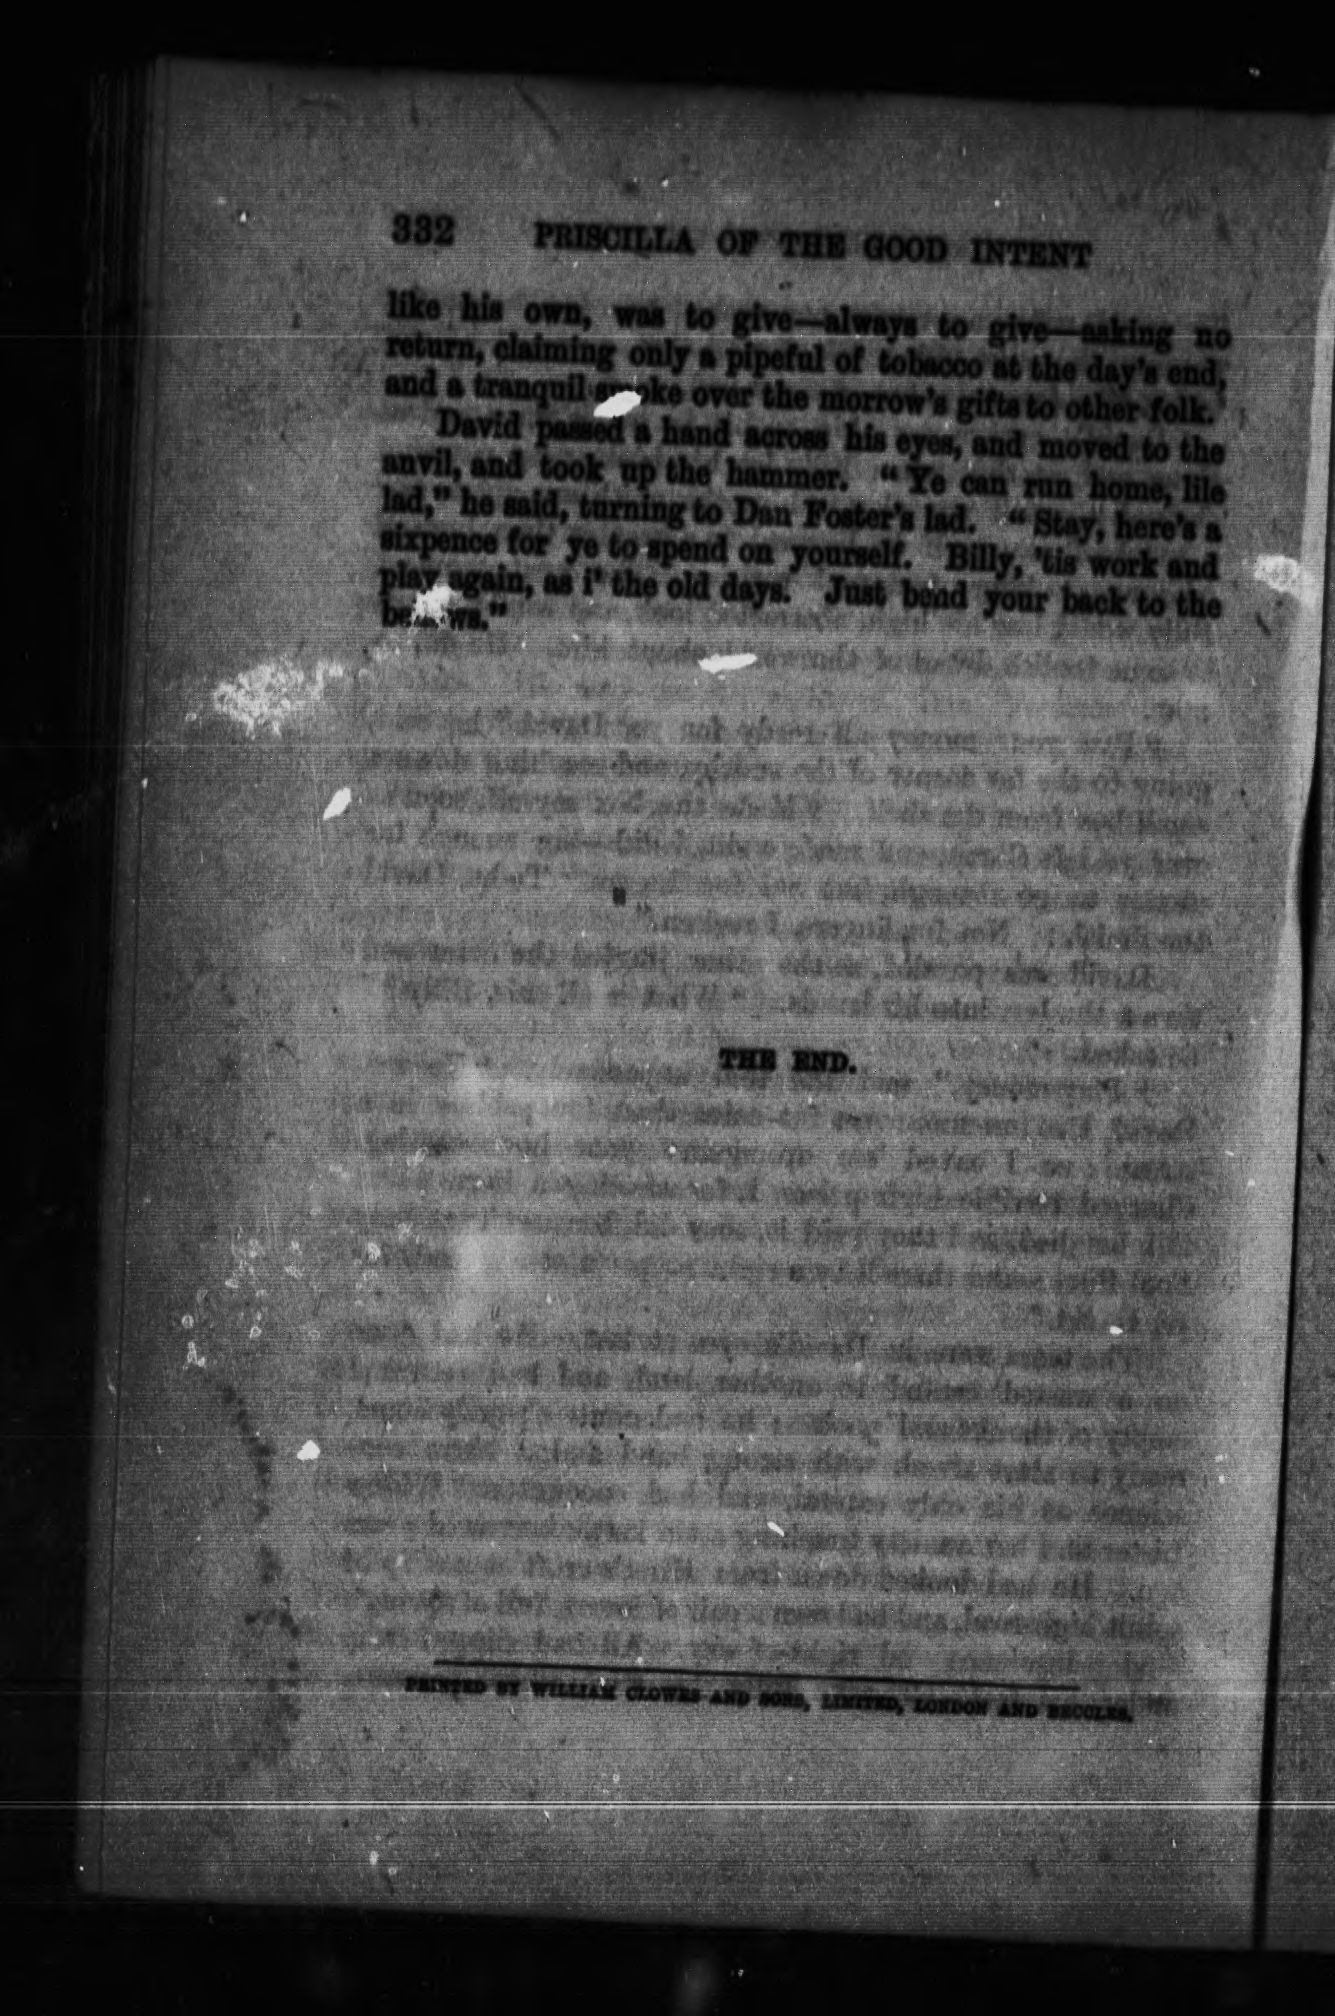 332 PRISCILLA OF THE GOOD INTENT
like his own, was to give—always to give—asking no
return, claiming only a pipeful of tobacco at the day's end,
and a tranquil smoke over the morrow's gifts to other folk.
David passed a hand across his eyes, and moved to the
anvil, and took up the hammer. "Ye can run home, lile
lad," he said, turning to Dan Foster's lad. "Stay, here's a
sixpence for ye to spend on yourself. Billy, 'tis work and
play again, as i' the old days. Just bend your back to the
bellows."
THE END.
PRINTED BY WILLIAM CLOWES AND SONS, LIMITED, LONDON AND BECCLES.